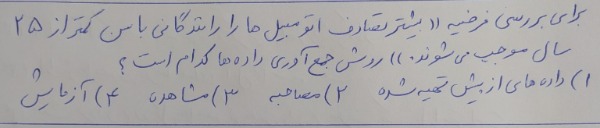 برای بررسی فرضیه (( بیشتر تصادف اتومبیل ها را رانندگانی با سن کمتر از ۲۵
سال موجب می شوند. )) روش جمع آوری داده ها کدام است ؟
۱) داده های از پیش تهیه شده ۲) مصاحبه ۳) مشاهده ۴) آزمایش